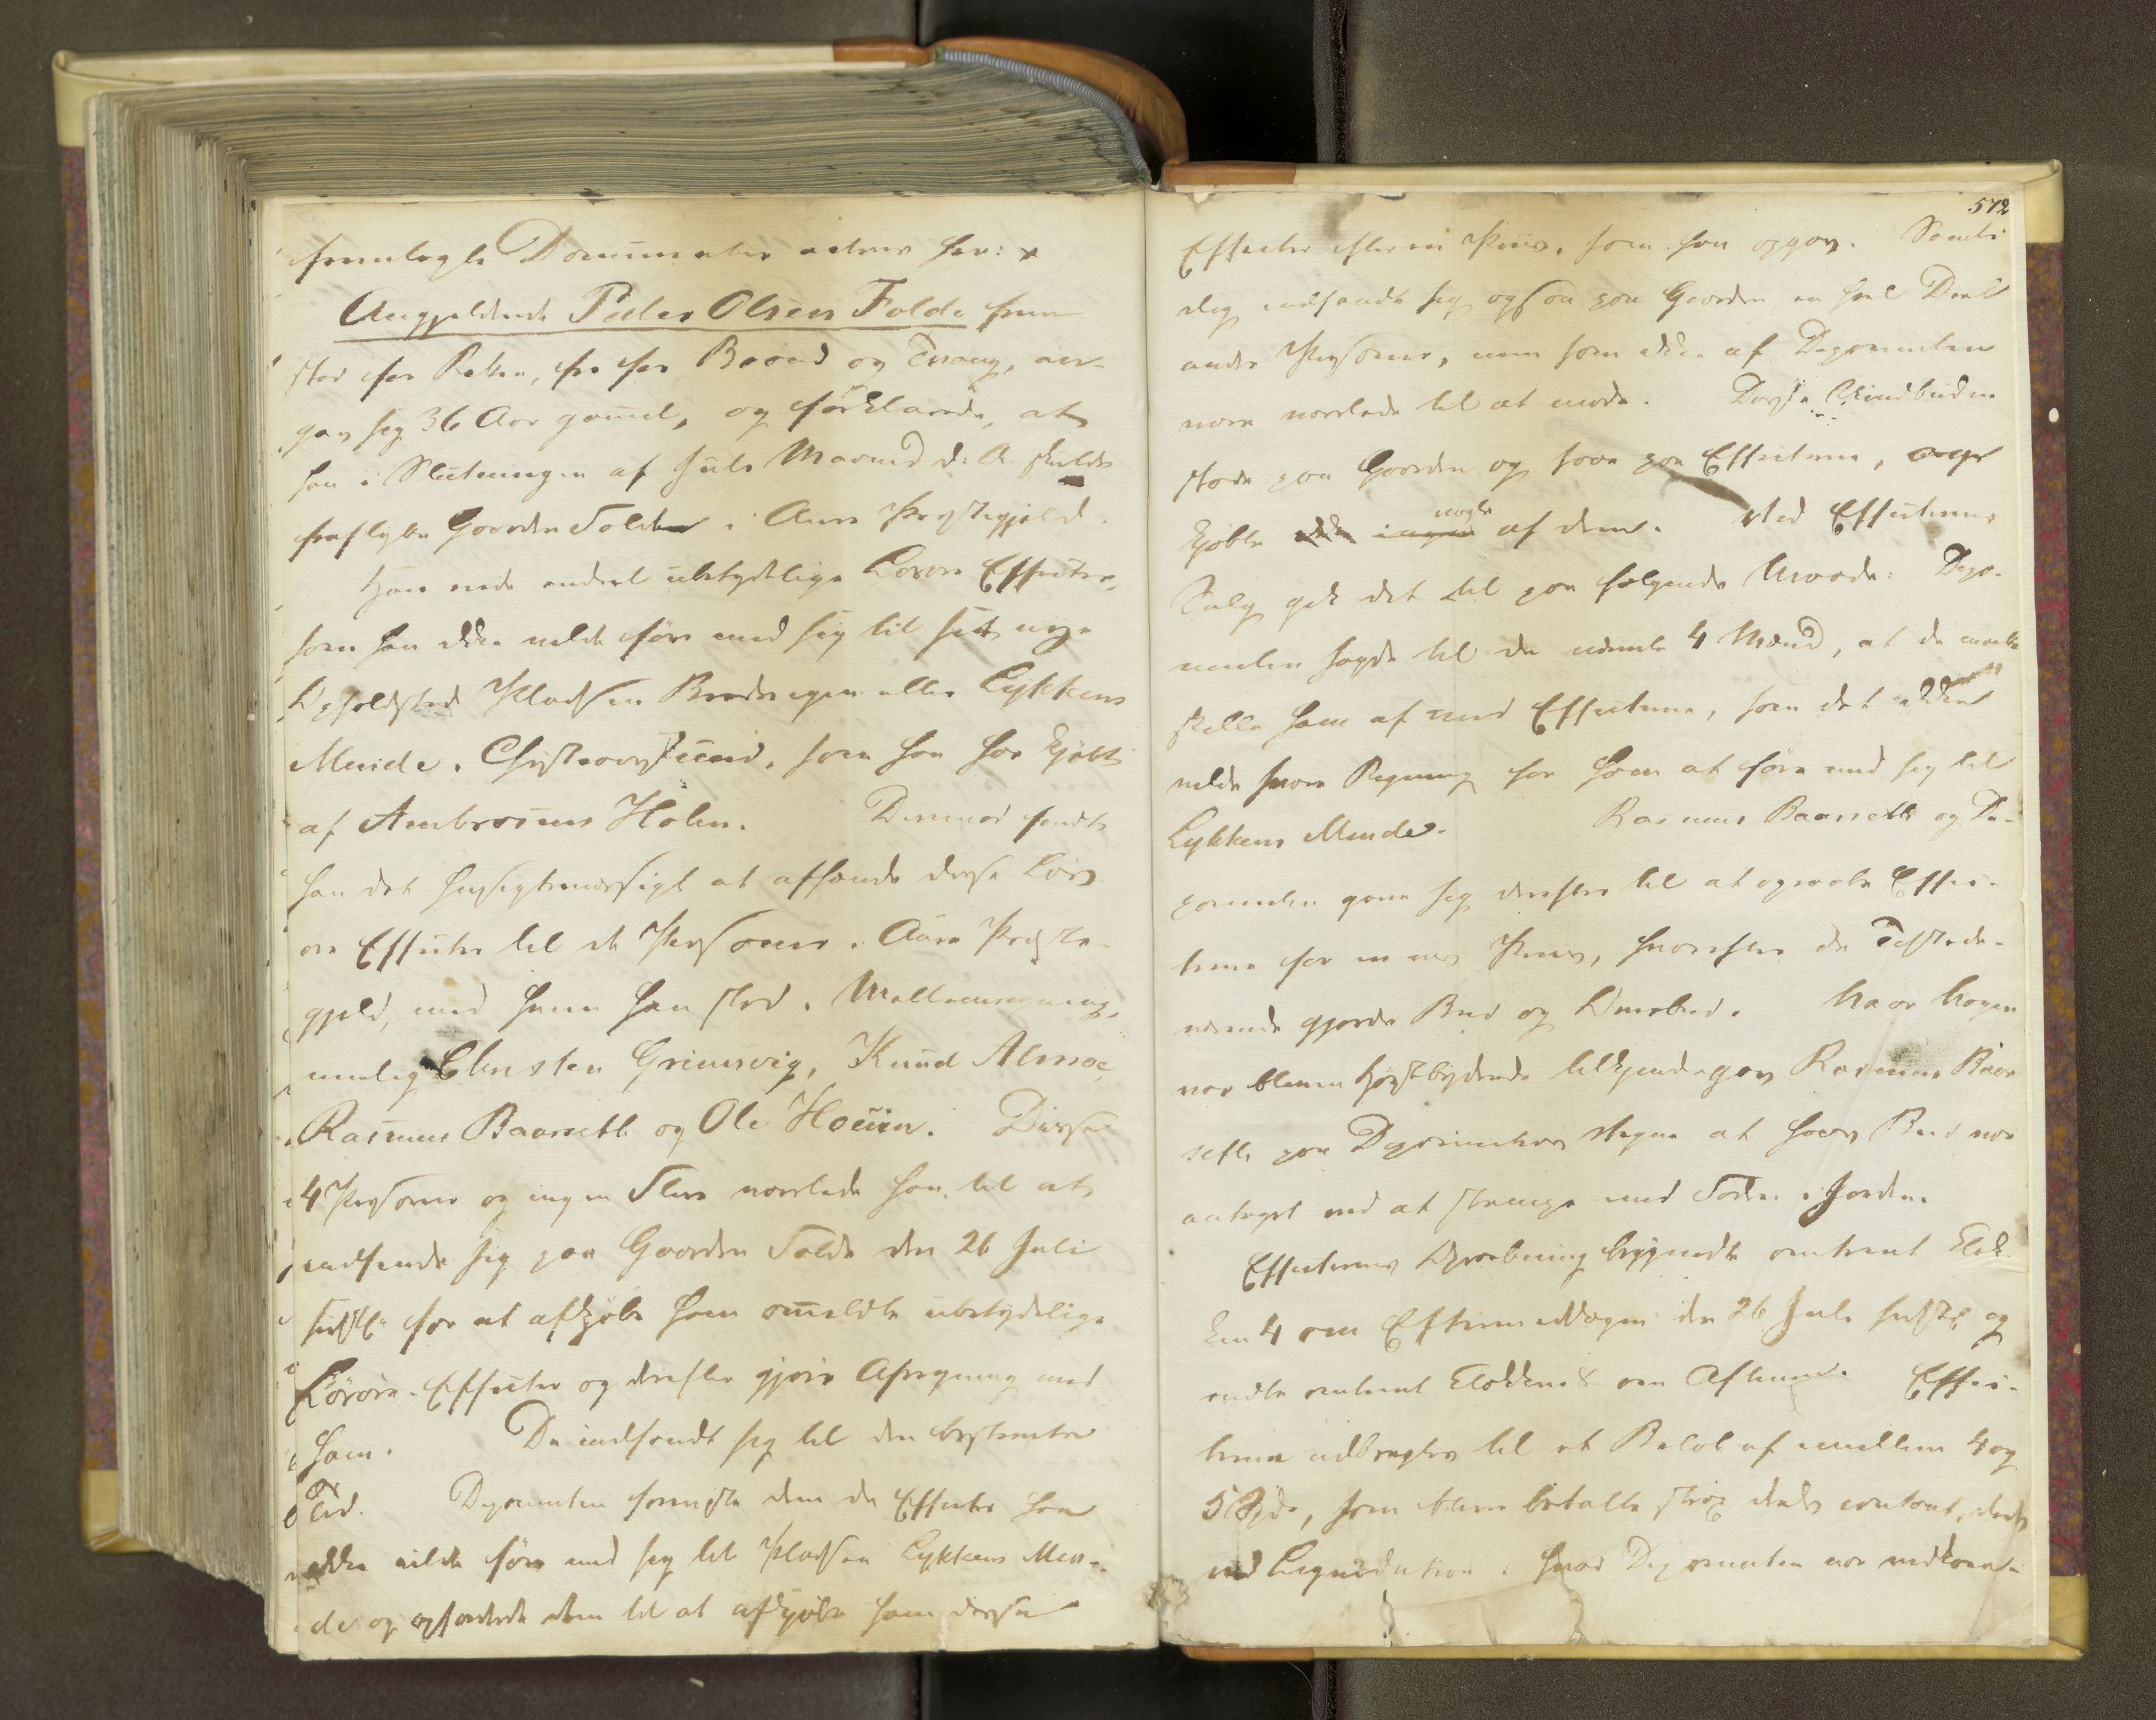 fremlagte Documenter acteres her: x
Angjeldende Peder Olsen Folde frem-
stod for Retten, fri for Baand og Tvang, an-
gav sig 36 Aar gammel, og forklarede, at
han i Slutningen af Juli Maaned d: A. skulde
fraflytte Gaarden Folde i Aure Præstegjeld.
Han eiede endeel ubetydelige Løsøre Effecter,
som han ikke vilde føre med sig til sit nye
Opholdssted Pladsen eller Lykkens
Minde i Christianssund, som han har kjøbt
af Ambrosius Holm. Derimod fandt
han det hensigtsmæssigt at afhænde disse Løs-
øre Effecter til de Personer i Aure Præste-
gjeld, med hvem han stod i Mellemregning,
nemlig Christen Grimsvig, Knud Almoe,
Rasmus Baarseth og Ole Hoeun. Disse
4 Personer og ingen Flere varslede han til at
indfinde sig paa Gaarden Folde den 26 Juli
sidstl: for at afkjøbe ham omældte ubetydelige
Løsøre-Effecter og derefter gjøre Afregning med
ham. De indfandt sig til den bestemte
Tid. Deponenten foreviste dem de Effecter han
ikke vilde føre med sig til Pladsen Lykkens Min-
de og opfordrede dem til at afkjøbe ham disse
572
Effecter efter en Priis, som han opgav. Samti-
dig indfandt sig ogsaa paa Gaarden en heel Deel
andre Personer, men som ikke af Deponenten
vare varslede til at møde. Disse Uindbudne
stode paa Gaarden og saae paa Effecterne, og
kjøbte ikke ingen nogle af dem. Ved Effecternes
Salg gik det til paa følgende Maade: Depo-
nenten sagde til de nævnte 4 Mænd, at de maatte
skille ham af med Effecterne, som det ikke
vilde svare Regning for ham at føre med sig til
Lykkens Minde. Rasmus Baarseth og De-
ponenten gave sig derefter til at opraabe Effec-
terne for en vis Priis, hvorefter de Tilstede-
værende gjorde Bud og Overbud. Naar Nogen
var bleven Høistbydende tilkjendegav Rasmus Baar-
seth paa Deponentens Vegne at hans Bud var
antaget ved at stampe med Foden i Jorden.
Effecternes Opraabning begyndte omtrent Klok-
ken 4 om Eftermiddagen den 26 Juli sidstl: og
endte omtrent Klokken 8 om Aftenen. Effec-
terne udbragtes til et Beløb af mellem 4 og
5 Spd, som bleve betalte strax deels contant, deels
ved Liqvidation i hvad Deponenten var vedkom-